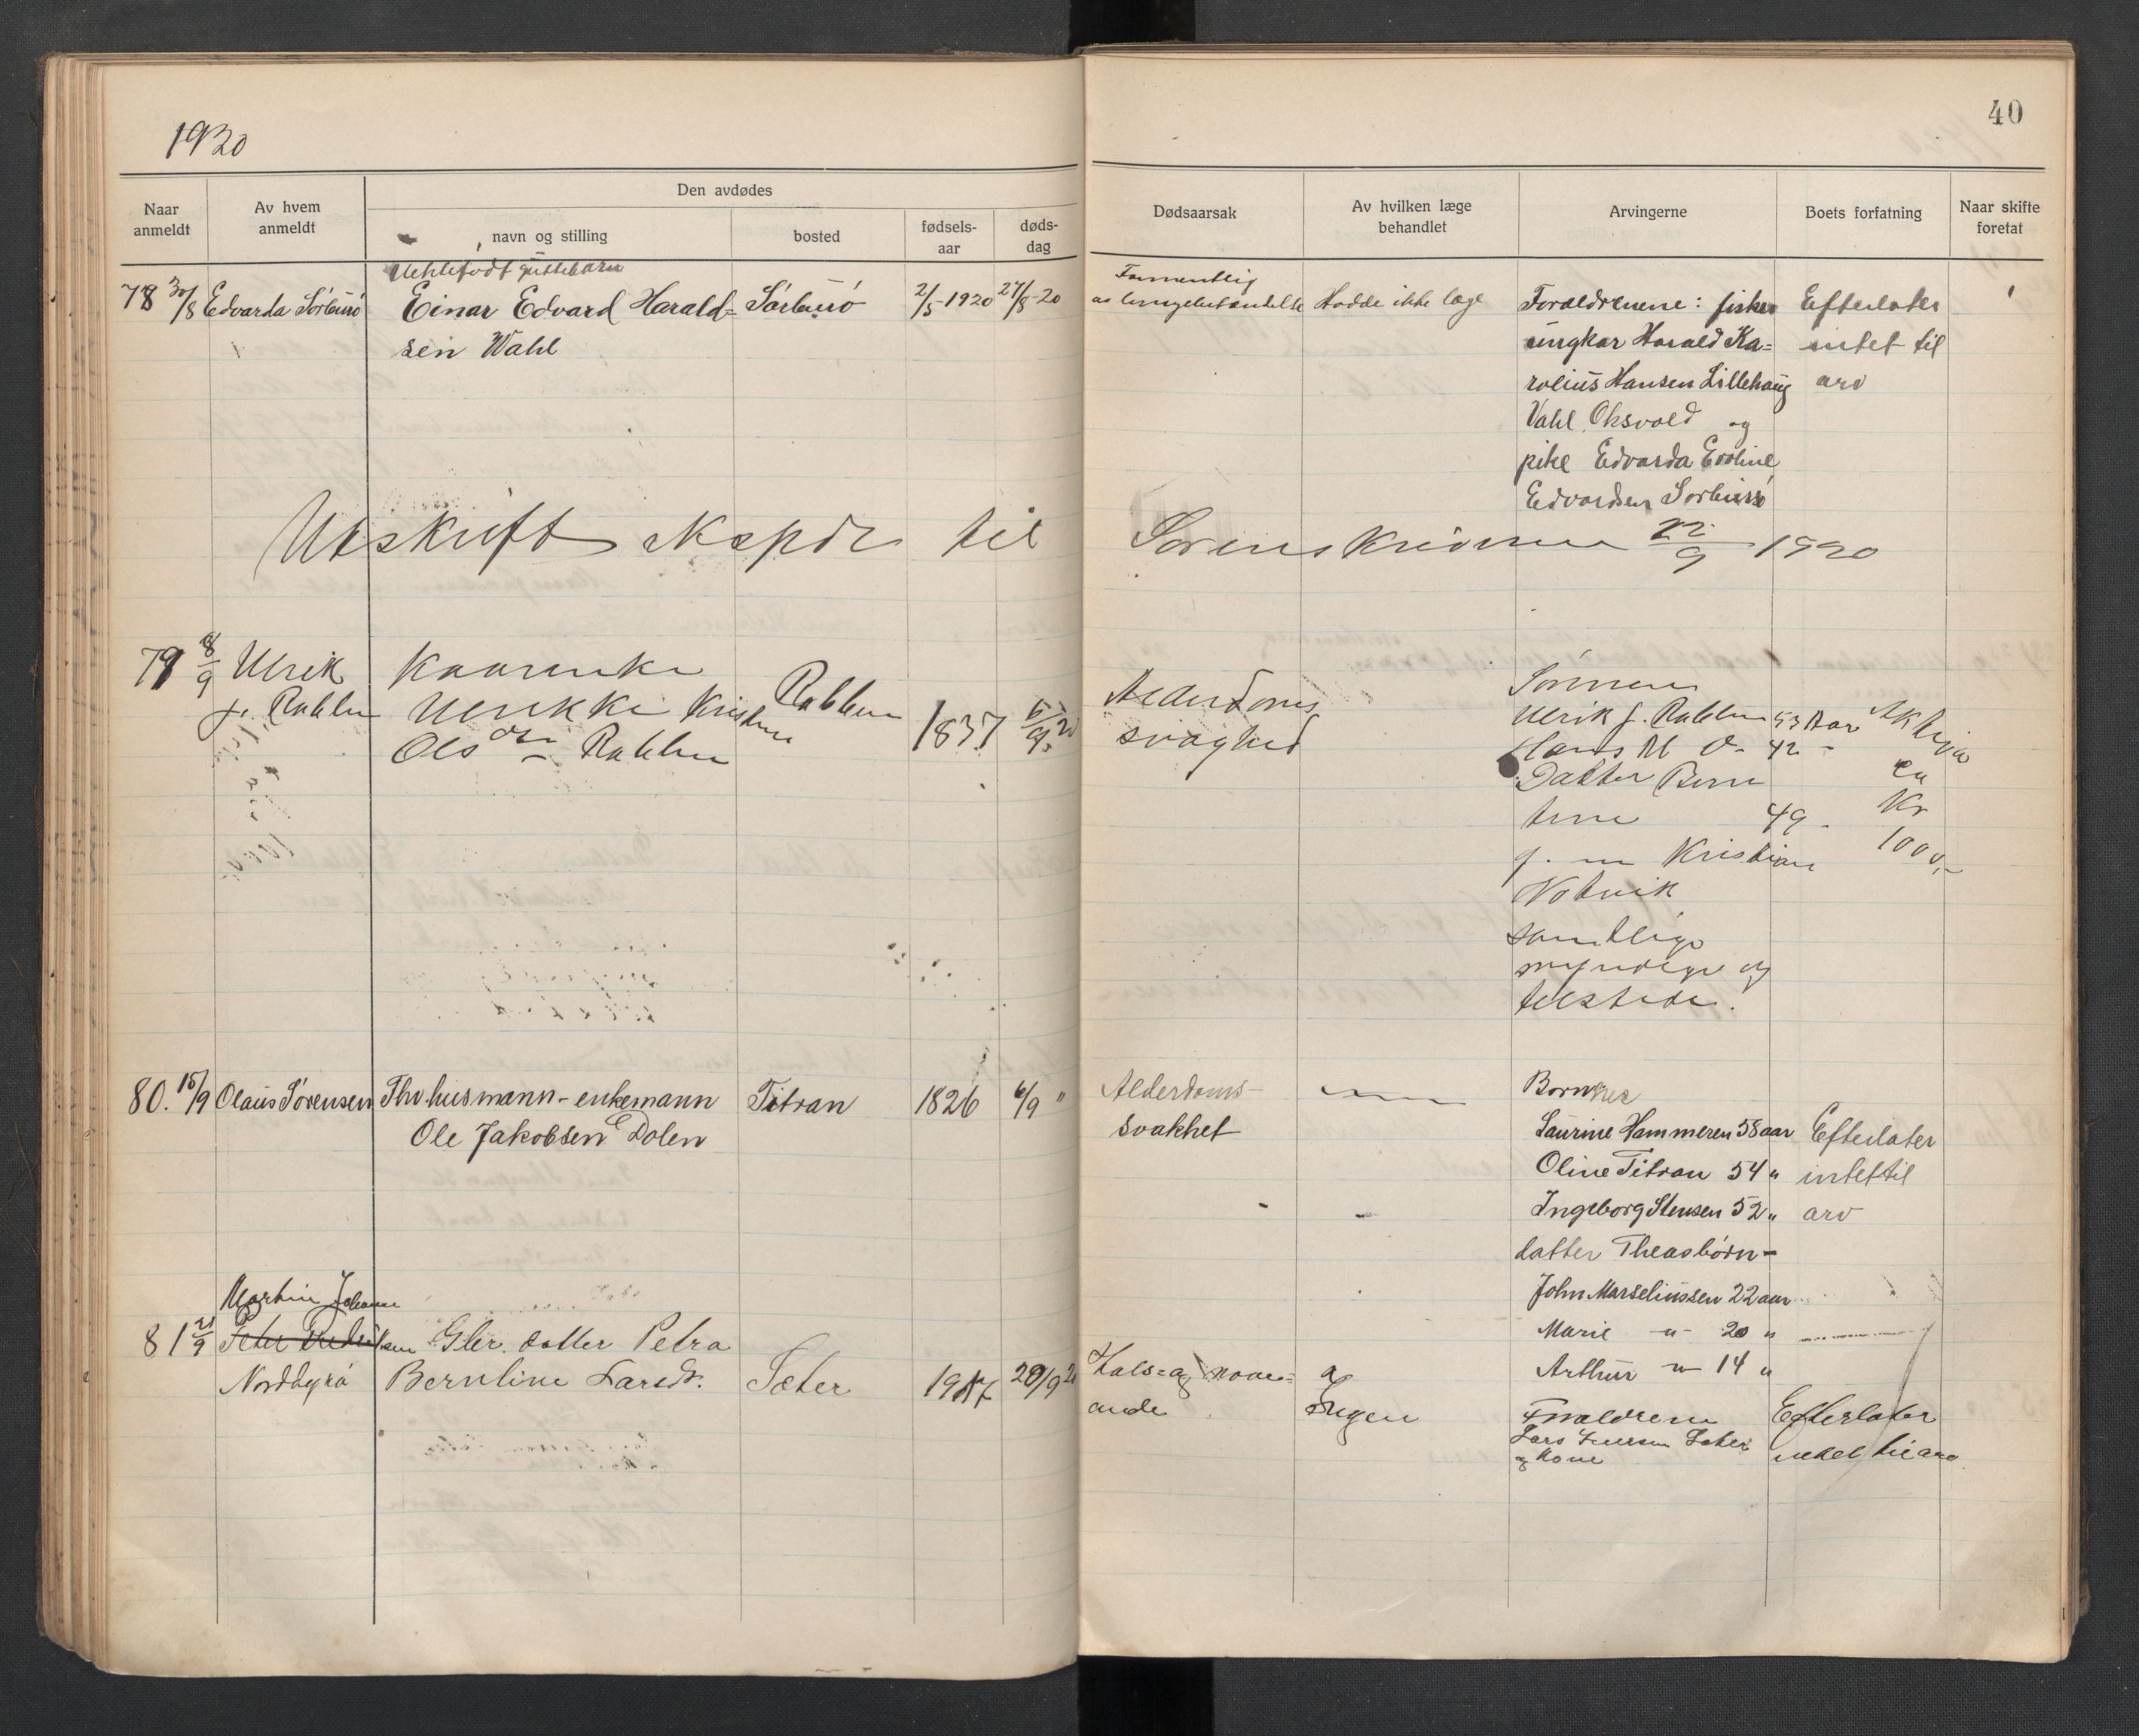 1920
40
Naar anmeldt
Av hvem anmeldt
Den avdødes
navn og stilling
bosted
fødsels-aar
døds-dag
Dødsaarsak
Av hvilken læge behandlet
Arvingerne
Boets forfatning
Naar skifte foretat
78 30/8 Edvarda Sörbusö
Uektefödt guttebarn
Einar Edvard Harald=
sen Wahl
Sörbusö
2/5-1920
27/8-20
Formentlig
av lungebetændelse
Hadde ikke læge
Forældrenene: fisker
ungkar Harald Ka=
rolius Hansen Lillehaug
Vahl Oksvold og
pike Edvarda Evoline
Edvardsen Sörbusö
Efterlater
intet til
arv
Utskrift ekspdr til Sorenskriveren 22/9 1920
79 8/9 Ulrik
J. Rabben
Kaarenke
Ulrikke Kristine
Olsdtr Rabben
Rabben
1837
5/9 20
Alderdoms
svaghed
Sönnen
Ulrik J. Rabben 53 Aar
Hans M O- 42 -
Datter Bern
tine 49 -
g. m Kristian
Notvik
samtlige
myndige og
tilstede.
Aktiva
ca
Kr
1000,-
80. 15/9 Olaus Sörensen
Fhv. husmann - enkemann
Ole Jakobsen Dolen
Titran
1826
6/9 "
Alderdoms-
svakhet
Börn
Laurine Hammeren 58 aar
Oline Titran 54 "
Ingeborg Stensen 52 "
datter Theas börn -
John Marseliussen 22 aar
Marie -"- 20 "
Arthur -"- 14 "
Efterlater
intet til
arv
81 21/9
Martin Johansen
Peter Fredriksen
Norddyrö
Gbr. datter Petra
Berntine Larsdr.
Sæter
1917
20/9 20
Hals= og
Ingen
Forældrene
Lars Iversen Sæter
og Kone
Efterlater
intet til arv